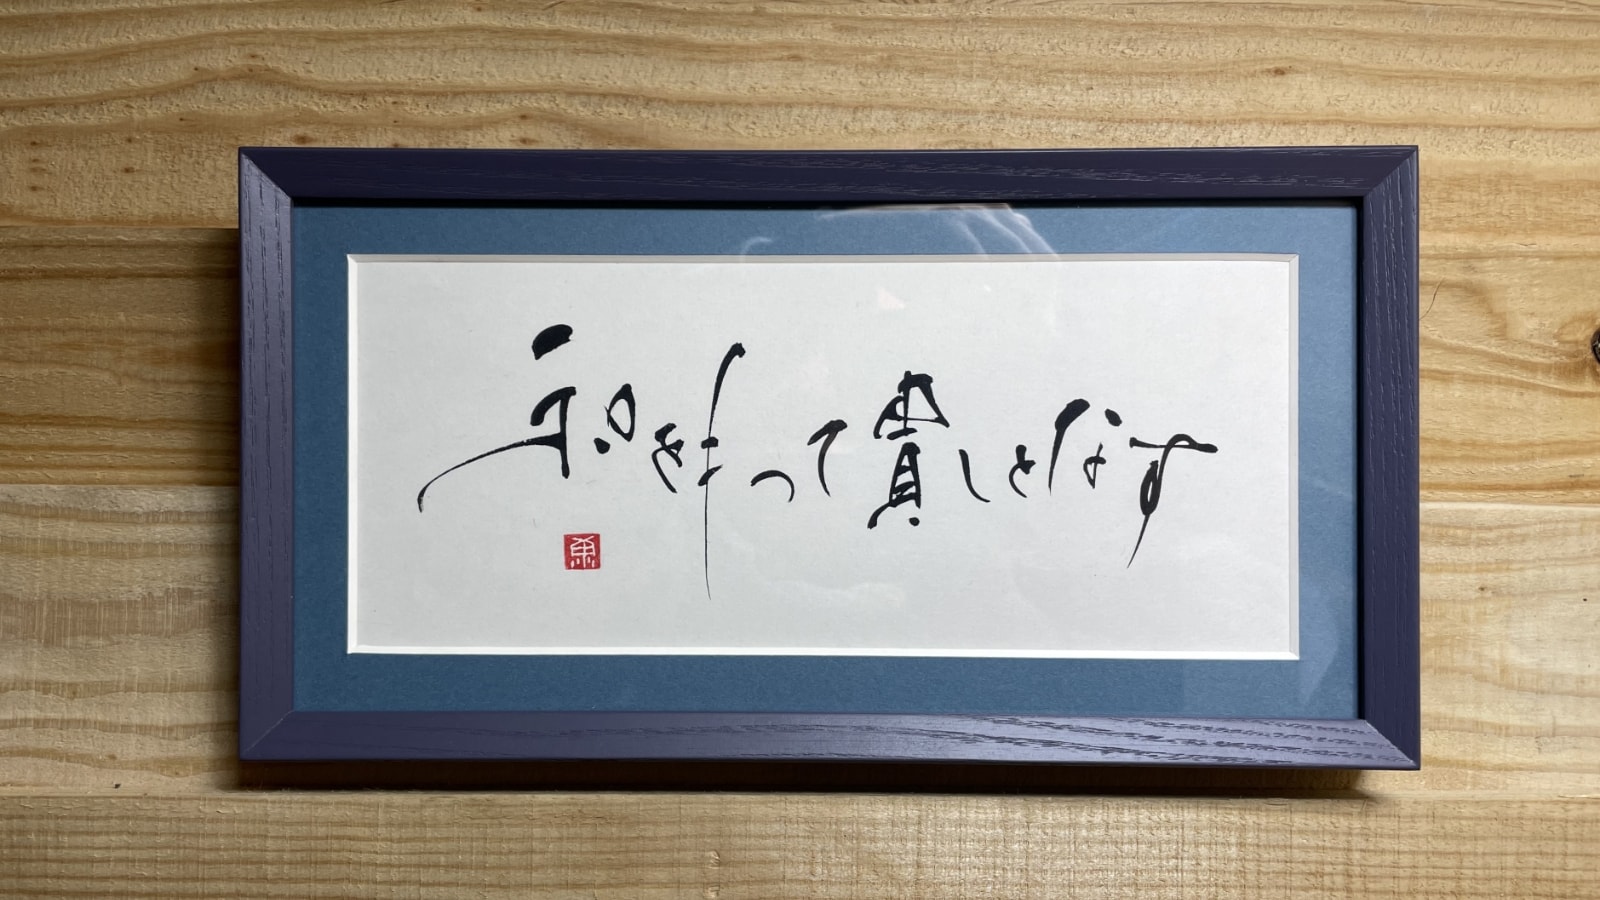 和をもって貴しとなす
魚